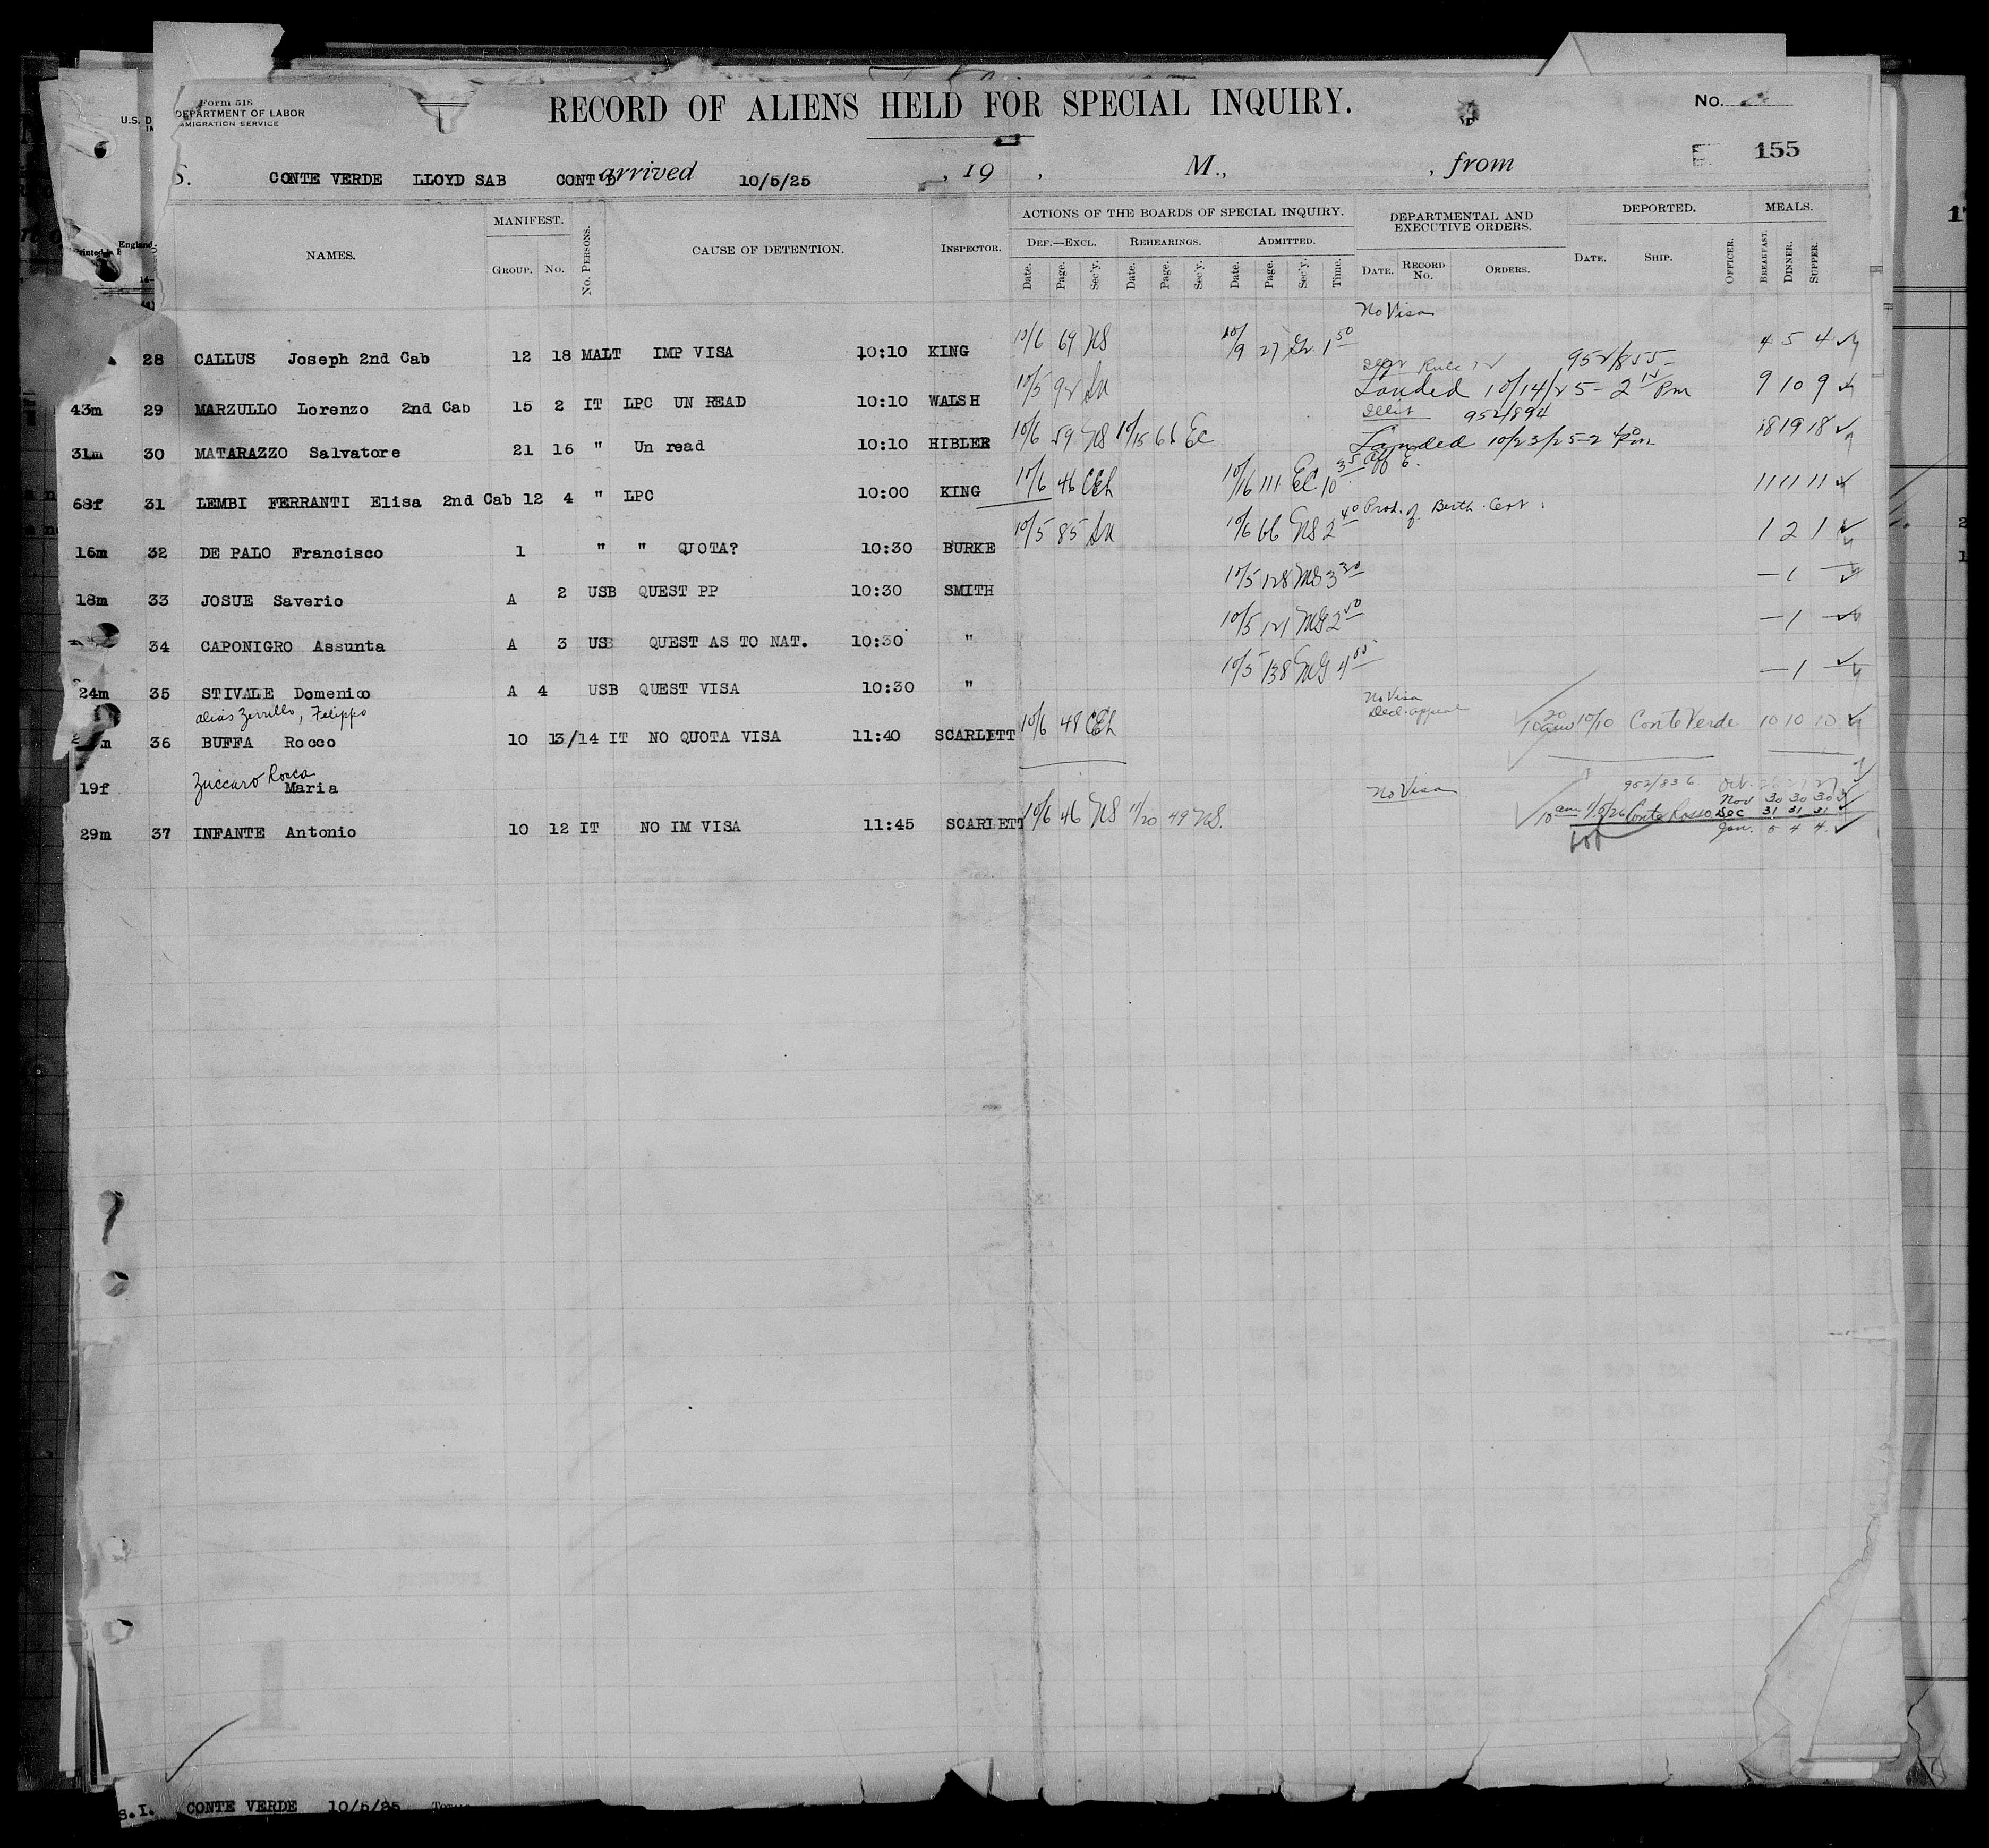 Form 518
U.S. D
DEPARTMENT OF LABOR
IMMIGRATION SERVICE
RECORD OF ALIENS HELD FOR SPECIAL INQUIRY.
No.
155
S. CONTE VERDE LLOYD SAB CONT'D arrived 10/5/25 , 19 , M., , from
NAMES. MANIFEST. GROUP. NO. No. PERSONS. CAUSE OF DETENTION. INSPECTOR. ACTIONS OF THE BOARDS OF SPECIAL INQUIRY. DEPARTMENTAL AND EXECUTIVE ORDERS. DEPORTED. MEALS.
DEF.—EXCL. REHEARINGS. ADMITTED.
Date. Page. Sec'y. Date. Page. Sec'y. Date. Page. Sec'y. Time. DATE. RECORD No. ORDERS. DATE. SHIP. OFFICER. BREAKFAST. DINNER. SUPPER.
No Visa
28 CALLUS Joseph 2nd Cab 12 18 MALT IMP VISA 10:10 KING 10/6 69 NS 10/9 27 1 50 4 5 4
952/855
43m 29 MARZULLO Lorenzo 2nd Cab 15 2 IT LPC UN READ 10:10 WALSH 10/5 92 Landed 10/14/25 - 2 Pm 9 10 9
952/894
31m 30 MATARAZZO Salvatore 21 16 " Un read 10:10 HIBLER 10/6 59 NS 10/15 66 EC Landed 10/23/25 - 2 40 Pm 18 19 18
68f 31 LEMBI FERRANTI Elisa 2nd Cab 12 4 " LPC 10:00 KING 10/6 46 CEh 10/16 111 EC 10 35 11 11 11
Prod. of Birth Cert.
16m 32 DE PALO Francisco 1 " " QUOTA? 10:30 BURKE 10/5 85 10/6 66 NS 2 40 1 2 1
18m 33 JOSUE Saverio A 2 USB QUEST PP 10:30 SMITH 10/5 128 MG 3 30 — 1 —
34 CAPONIGRO Assunta A 3 USB QUEST AS TO NAT. 10:30 " 10/5 121 MG 2 50 — 1 —
24m 35 STIVALE Domenico A 4 USB QUEST VISA 10:30 " 10/5 138 MG 4 — 1 —
alias Zerrillo, Felippo
No Visa
Decl. appeal
36 BUFFA Rocco 10 13/14 IT NO QUOTA VISA 11:40 SCARLETT 10/6 48 CEh 10/10 Conte Verde 10 10 10
Zuccaro Rocca
19f Maria
No Visa
952/836 Oct.
Nov 30 30 30
29m 37 INFANTE Antonio 10 12 IT NO IM VISA 11:45 SCARLETT 10/6 46 NS 11/20 49 NS. 10 am 1/5/26 Conte Rosso Dec 31 31 31
Jan. 5 4 4
S.I. CONTE VERDE 10/5/25